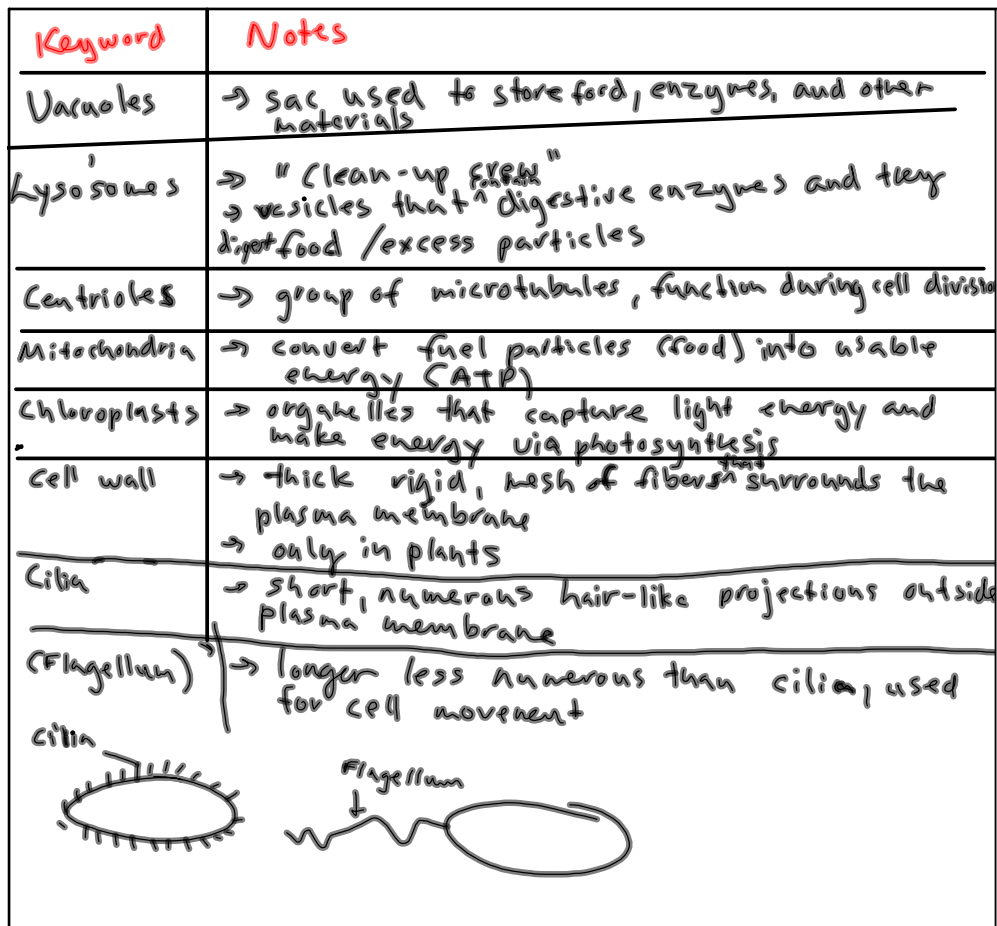 Keyword Notes
Vacuoles → sac used to store food, enzymes, and other
materials
Lysosomes → "Clean-up crew"
→ vesicles that contain digestive enzymes and they
digest food / excess particles
Centrioles → group of microtubules, function during cell division
Mitochondria → convert fuel particles (food) into usable
energy (ATP)
Chloroplasts → organelles that capture light energy and
make energy via photosynthesis
Cell wall → thick rigid, mesh of fibers that surrounds the
plasma membrane
→ only in plants
Cilia → short, numerous hair-like projections outside
plasma membrane
(Flagellum) → longer less numerous than cilia, used
for cell movement
cilia
Flagellum